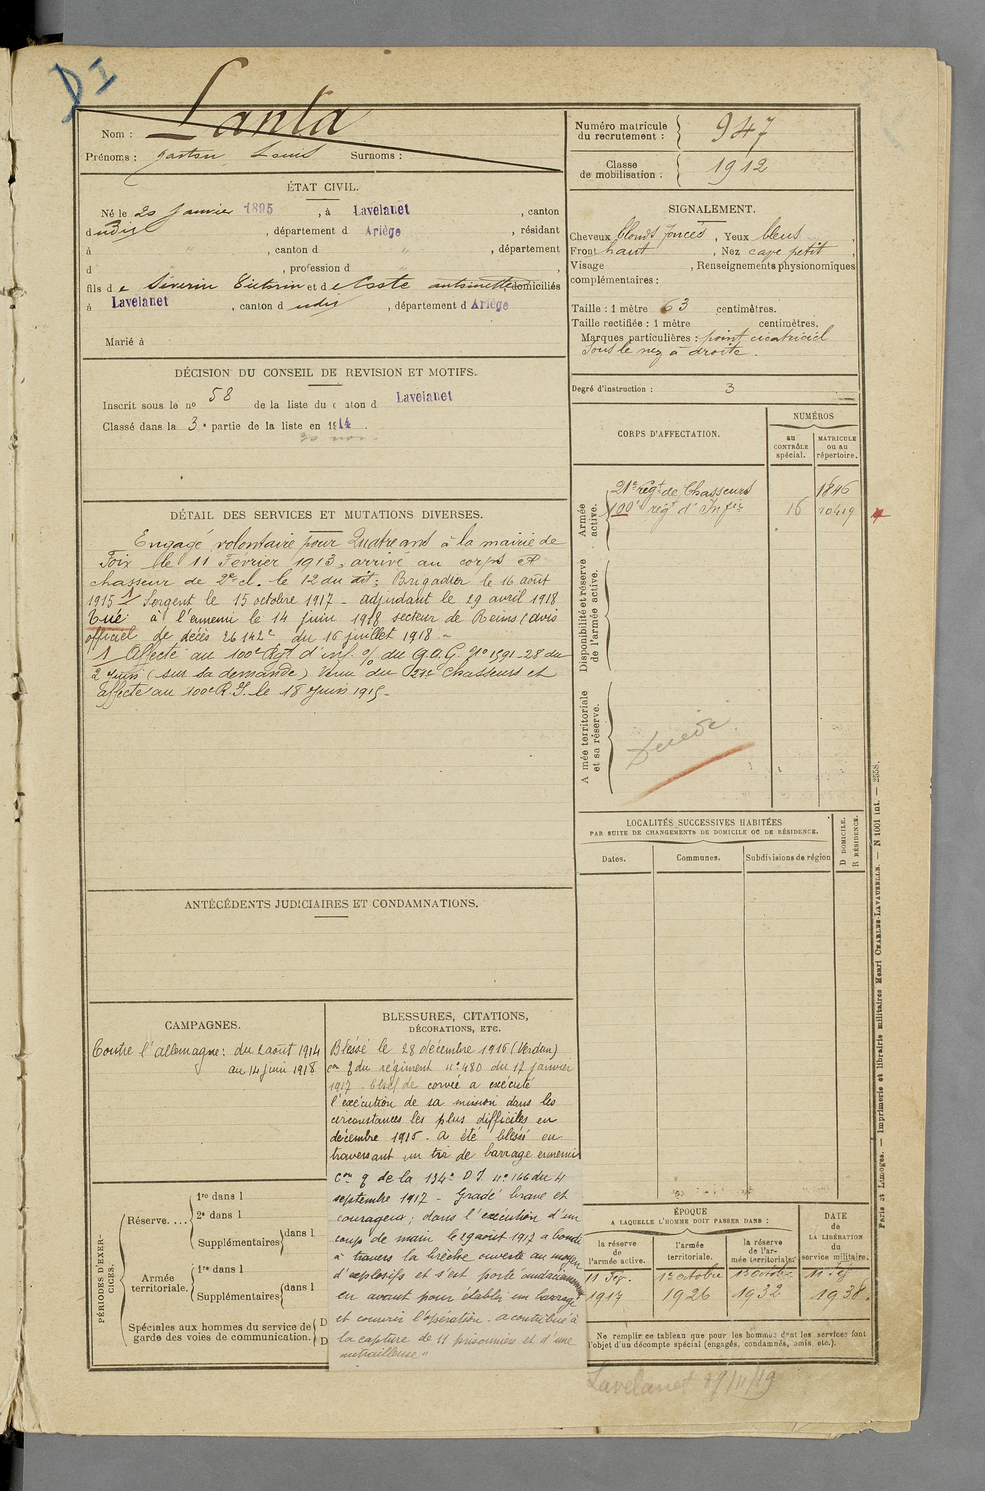 D I
Nom : Lanta
Prénoms : Gaston Louis Surnoms :
Numéro matricule du recrutement : 947
Classe de mobilisation : 1912
ÉTAT CIVIL.
Né le 20 Janvier 1895, à Lavelanet, canton
dudit, département d Ariège, résidant
à " , canton d " , département
d " , profession d ,
fils de Séverin Victorin et de Coste antoinette, domiciliés
à Lavelanet, canton dudit, département d Ariège
Marié à
SIGNALEMENT.
Cheveux blonds foncés, Yeux bleus,
Front haut, Nez cave petit,
Visage , Renseignements physionomiques
complémentaires :
Taille : 1 mètre 63 centimètres.
Taille rectifiée : 1 mètre centimètres.
Marques particulières : point cicatriciel
sous le nez à droite.
Degré d'instruction : 3
DÉCISION DU CONSEIL DE REVISION ET MOTIFS.
Inscrit sous le no 58 de la liste du canton d Lavelanet
Classé dans la 3e partie de la liste en 1914.
CORPS D'AFFECTATION.
NUMÉROS
au CONTRÔLE spécial.
MATRICULE ou au répertoire.
Armée active.
21e régt de Chasseurs 1846
100e régt d'Infie 16 10419
Disponibilité et réserve de l'armée active.
A mée territoriale et sa réserve.
Décédé
DÉTAIL DES SERVICES ET MUTATIONS DIVERSES.
Engagé volontaire pour Quatre ans à la mairie de
Foix le 11 Février 1913, arrivé au corps et
chasseur de 2e cl. le 12 du dit; Brigadier le 16 août
1915 1 Sergent le 15 octobre 1917 - adjudant le 29 avril 1918
Tué à l'ennemi le 14 juin 1918 secteur de Reims (avis
officiel de décès 26142c du 16 juillet 1918.-
1 Affecté au 100e Rgt d'inf. % du G.Q.G. No 1591-28 du
2 Juin (sur sa demande) Venu du 21e Chasseurs et
affecté au 100e R.I. le 18 Juin 1915-
LOCALITÉS SUCCESSIVES HABITÉES
PAR SUITE DE CHANGEMENTS DE DOMICILE OU DE RÉSIDENCE.
Dates. Communes. Subdivisions de région
D DOMICILE. R RÉSIDENCE.
ANTÉCÉDENTS JUDICIAIRES ET CONDAMNATIONS.
CAMPAGNES.
Contre l'allemagne: du 2 août 1914
au 14 juin 1918
BLESSURES, CITATIONS,
DÉCORATIONS, ETC.
Blessé le 28 décembre 1916 (Verdun)
Con q du régiment no 480 du 17 janvier
1917. Chef de corvée a exécuté
l'exécution de sa mission dans les
circonstances les plus difficiles en
décembre 1916. a été blessé en
traversant un tir de barrage ennemi
Con q de la 134e D.I no 166 du 4
septembre 1917 - Gradé brave et
courageux; dans l'exécution d'un
coup de main le 29 août 1917 a bondi
à travers la brèche ouverte au moyen
d'explosifs et s'est porté audacieusement
en avant pour établir un barrage
et couvrir l'opération. a contribué à
la capture de 11 prisonniers et d'une
mitrailleuse"
PÉRIODES D'EXERCICES.
Réserve....
1re dans l
2e dans l
Supplémentaires dans l
Armée territoriale.
1re dans l
Supplémentaires dans l
Spéciales aux hommes du service de
garde des voies de communication. D D
ÉPOQUE
A LAQUELLE L'HOMME DOIT PASSER DANS :
la réserve de l'armée active.
l'armée territoriale.
la réserve de l'armée territoriale.
DATE de LA LIBÉRATION du service militaire.
11 Fév. 1er octobre 1er octobre 11 Fév
1917 1926 1932 1938.
Ne remplir ce tableau que pour les hommes dont les services font
l'objet d'un décompte spécial (engagés, condamnés, omis, etc.).
Lavelanet
Paris et Limoges. — Imprimerie et librairie militaires Henri CHARLES-LAVAUZELLE. — N 1001 int. — 2558.